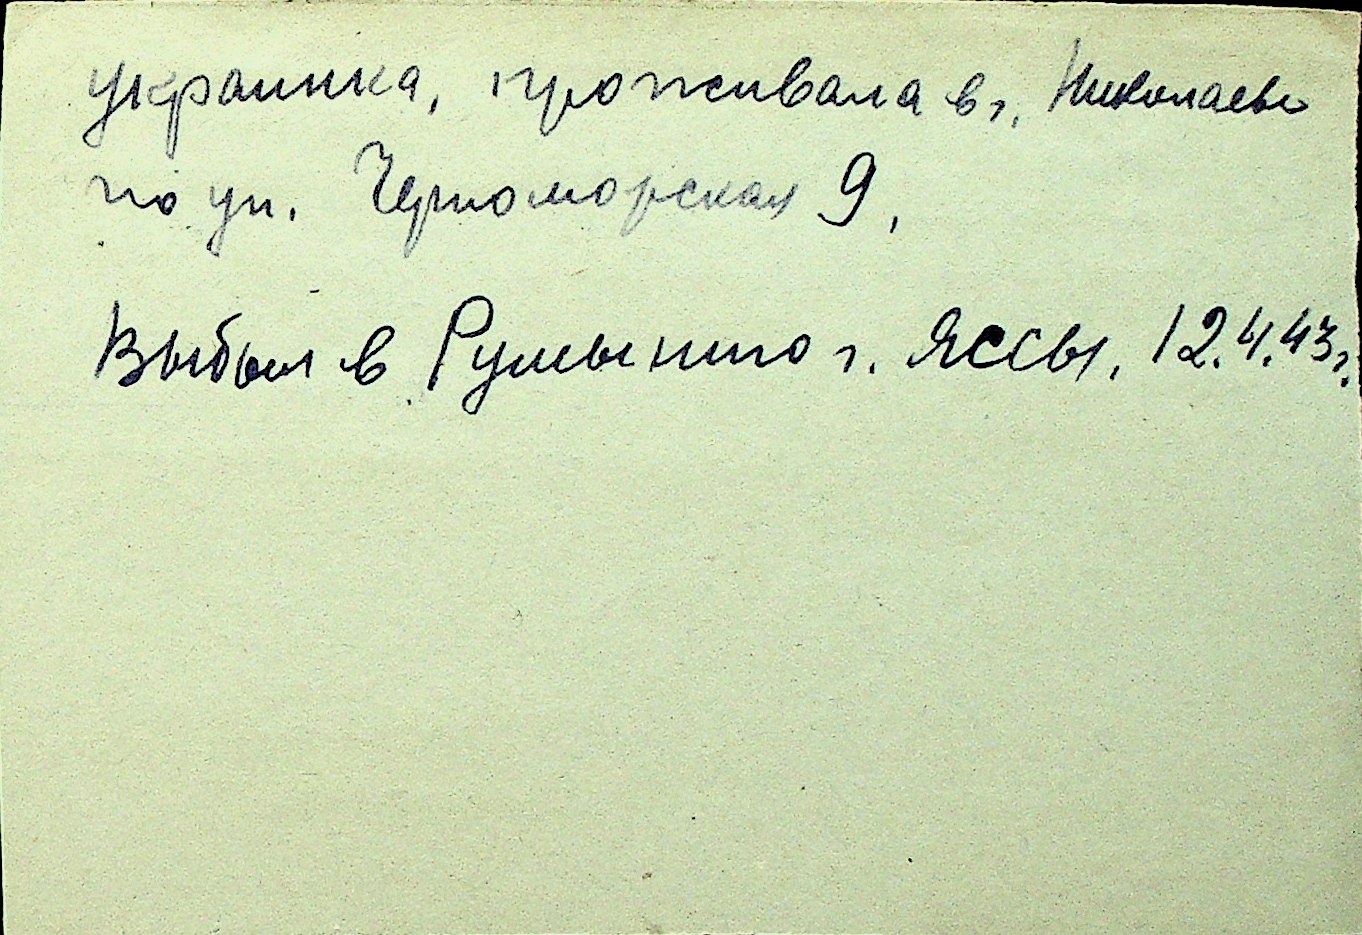 украинка, проживала в г. Николаеве
по ул. Черноморская 9,
Выбыл в Румынию г. Яссы, 12.4.43г.